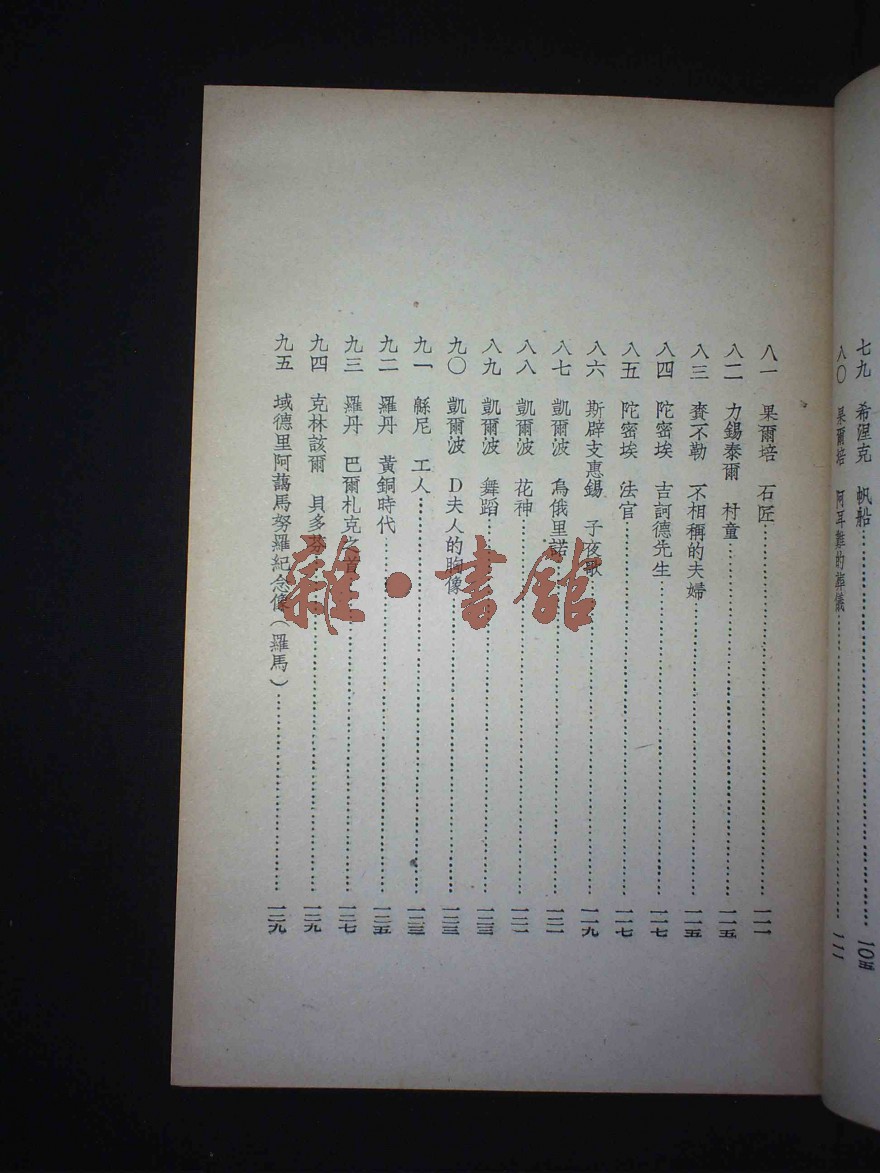 七九 希涅克 帆船 一〇五
八〇 果爾培 阿耳難的葬儀 一一一
八一 果爾培 石匠 一一一
八二 力錫泰爾 村童 一一五
八三 賚不勒 不相稱的夫婦 一一五
八四 陀密埃 吉訶德先生 一一七
八五 陀密埃 法官 一一七
八六 斯辟支惠錫 子夜歌 一一九
八七 凱爾波 烏俄里諾 一二一
八八 凱爾波 花神 一二一
八九 凱爾波 舞蹈 一二三
九〇 凱爾波 D夫人的胸像 一二三
九一 緜尼 工人 一二三
九二 羅丹 黃銅時代 一二五
九三 羅丹 巴爾札克之首 一二七
九四 克林該爾 貝多芬 一二九
九五 域德里阿藹馬努羅紀念像（羅馬） 一二九
雜·書館